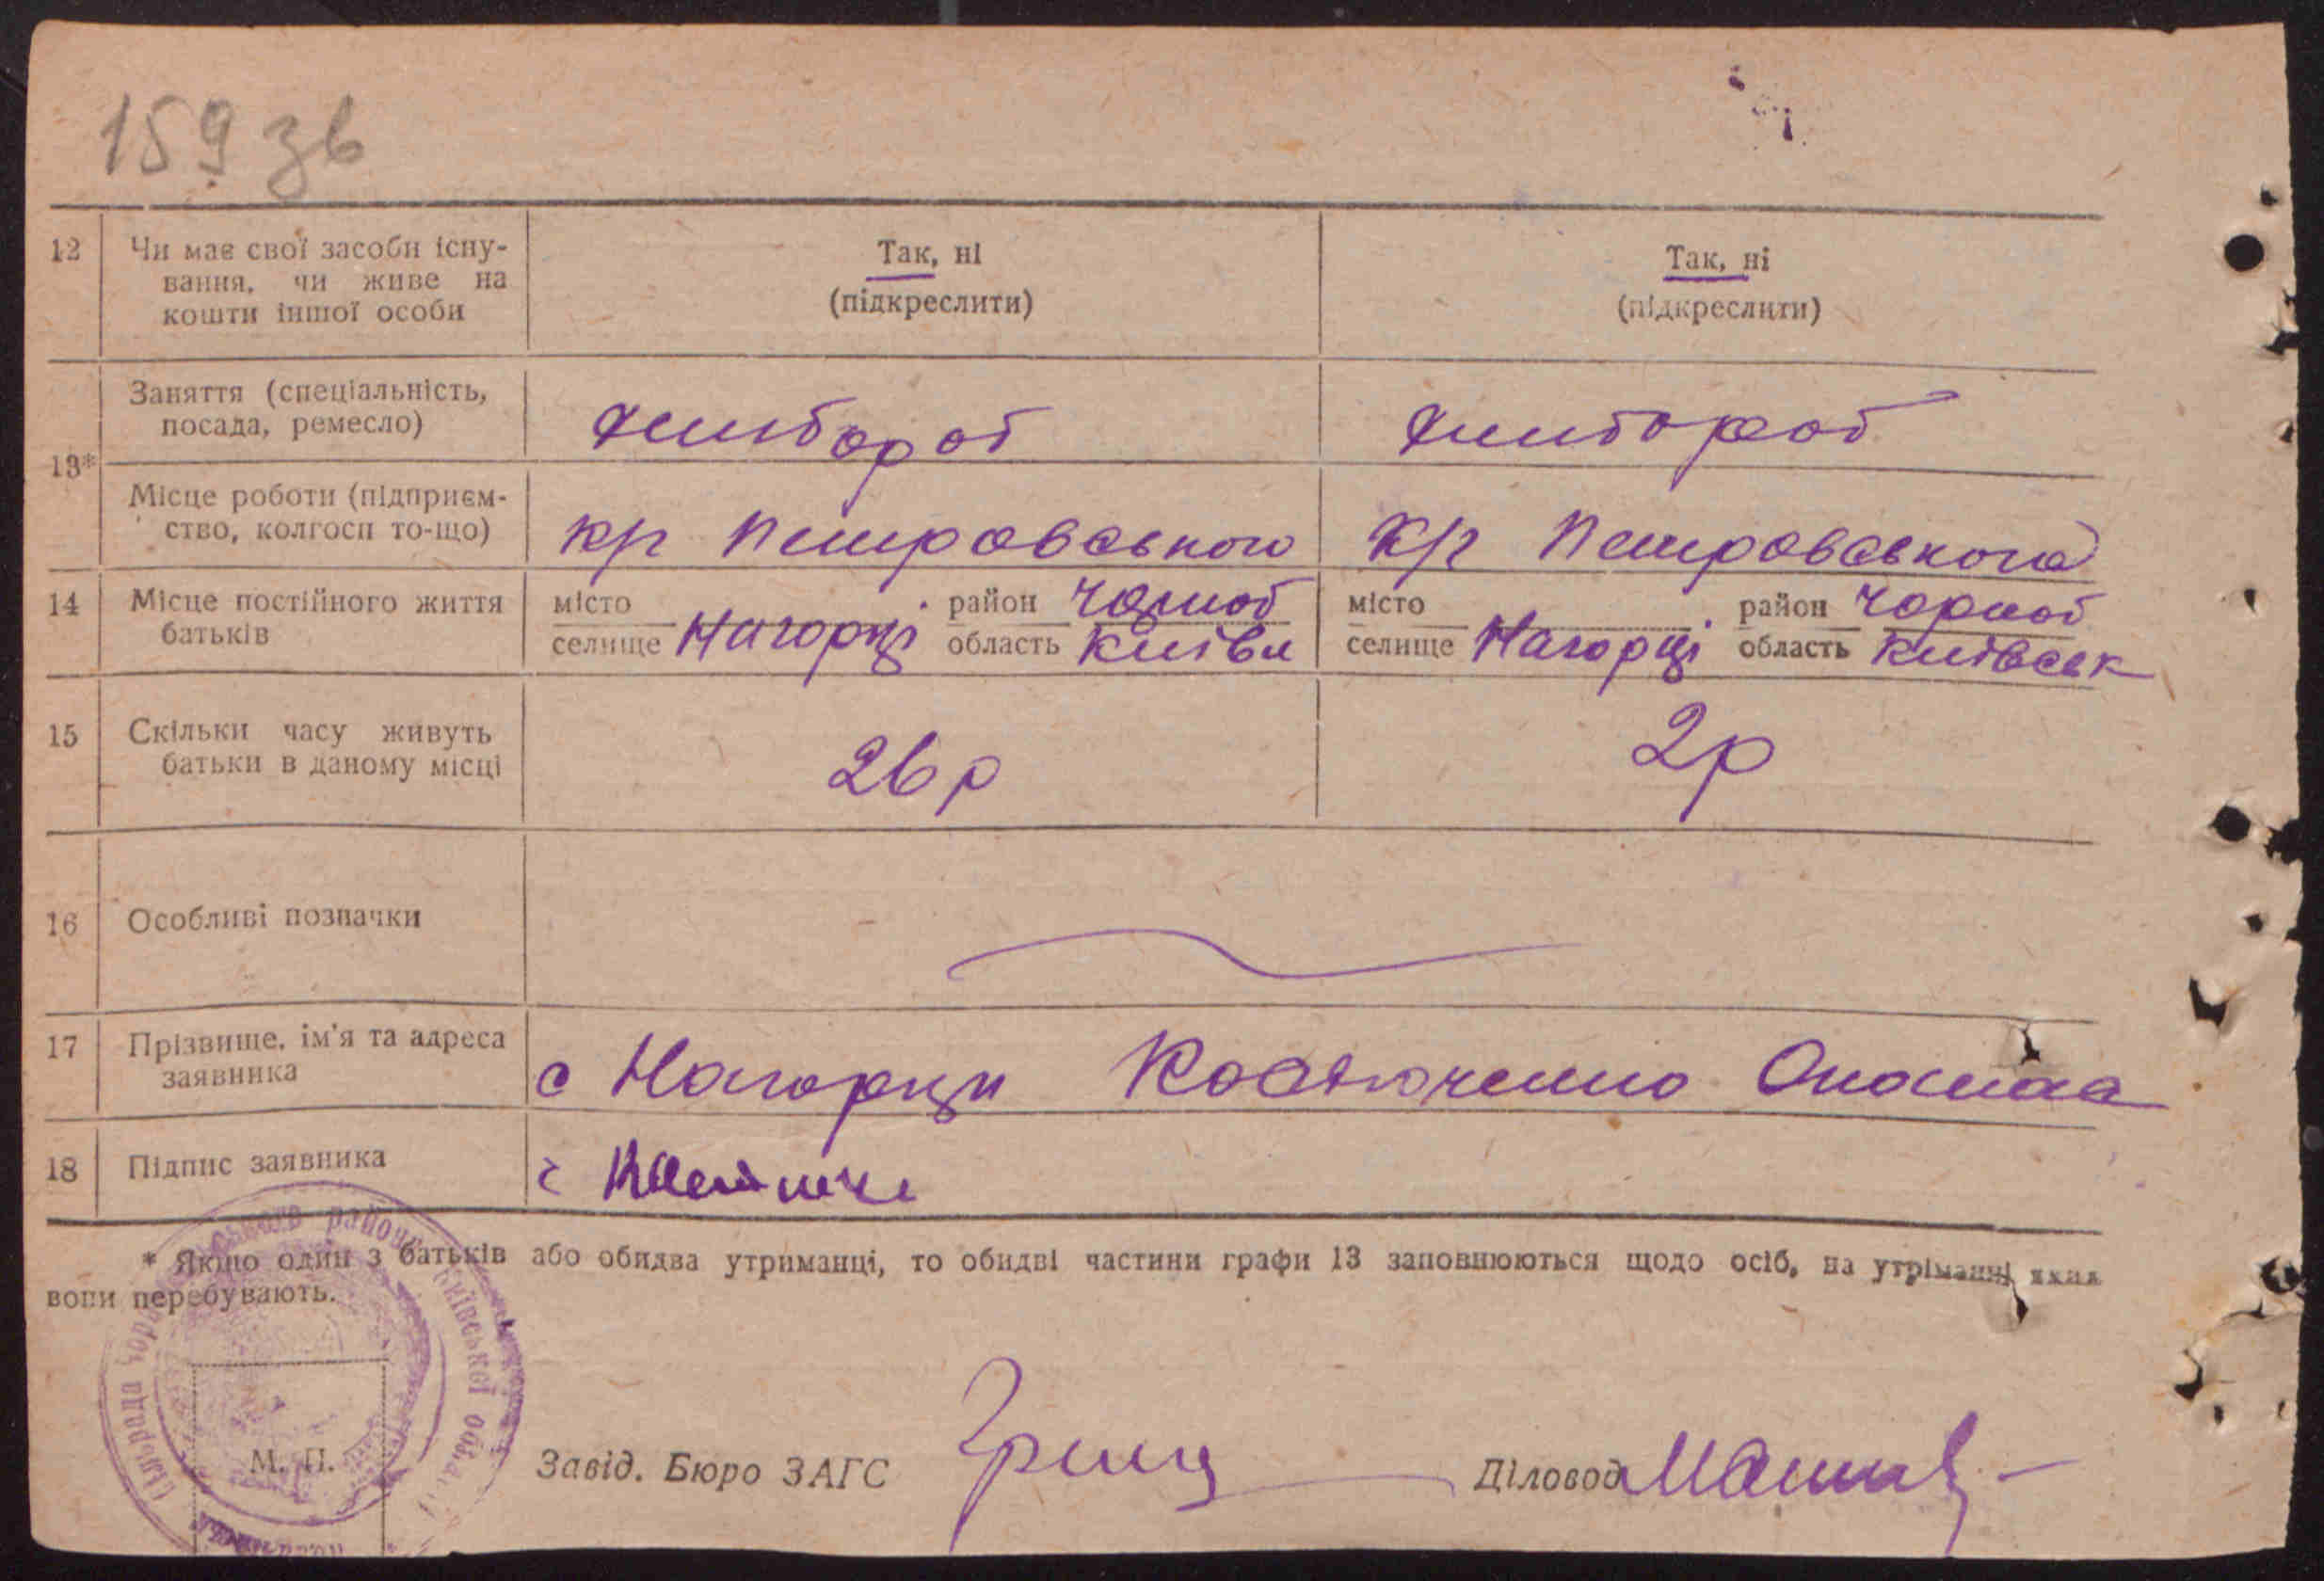 159 зв
12 Чи має свої засоби існу- Так, ні Так, ні
вання, чи живе на (підкреслити) (підкреслити)
кошти іншої особи
13* Заняття (спеціальність, хлібороб хлібороб
посада, ремесло)
Місце роботи (підприєм- к/г Петровського к/г Петровського
ство, колгосп то-що)
14 Місце постійного життя місто район Чорноб місто район Чорноб
батьків селище Нагорці область Київ селище Нагорці область Київськ
15 Скільки часу живуть 26 р 2 р
батьки в даному місці
16 Особливі позначки
17 Прізвище, ім'я та адреса с Нагорци Костюченко Опанас
заявника
18 Підпис заявника
* Якщо один з батьків або обидва утриманці, то обидві частини графи 13 заповнюються щодо осіб, на утріманні яких
вони перебувають.
М. П. Завід. Бюро ЗАГС Діловод